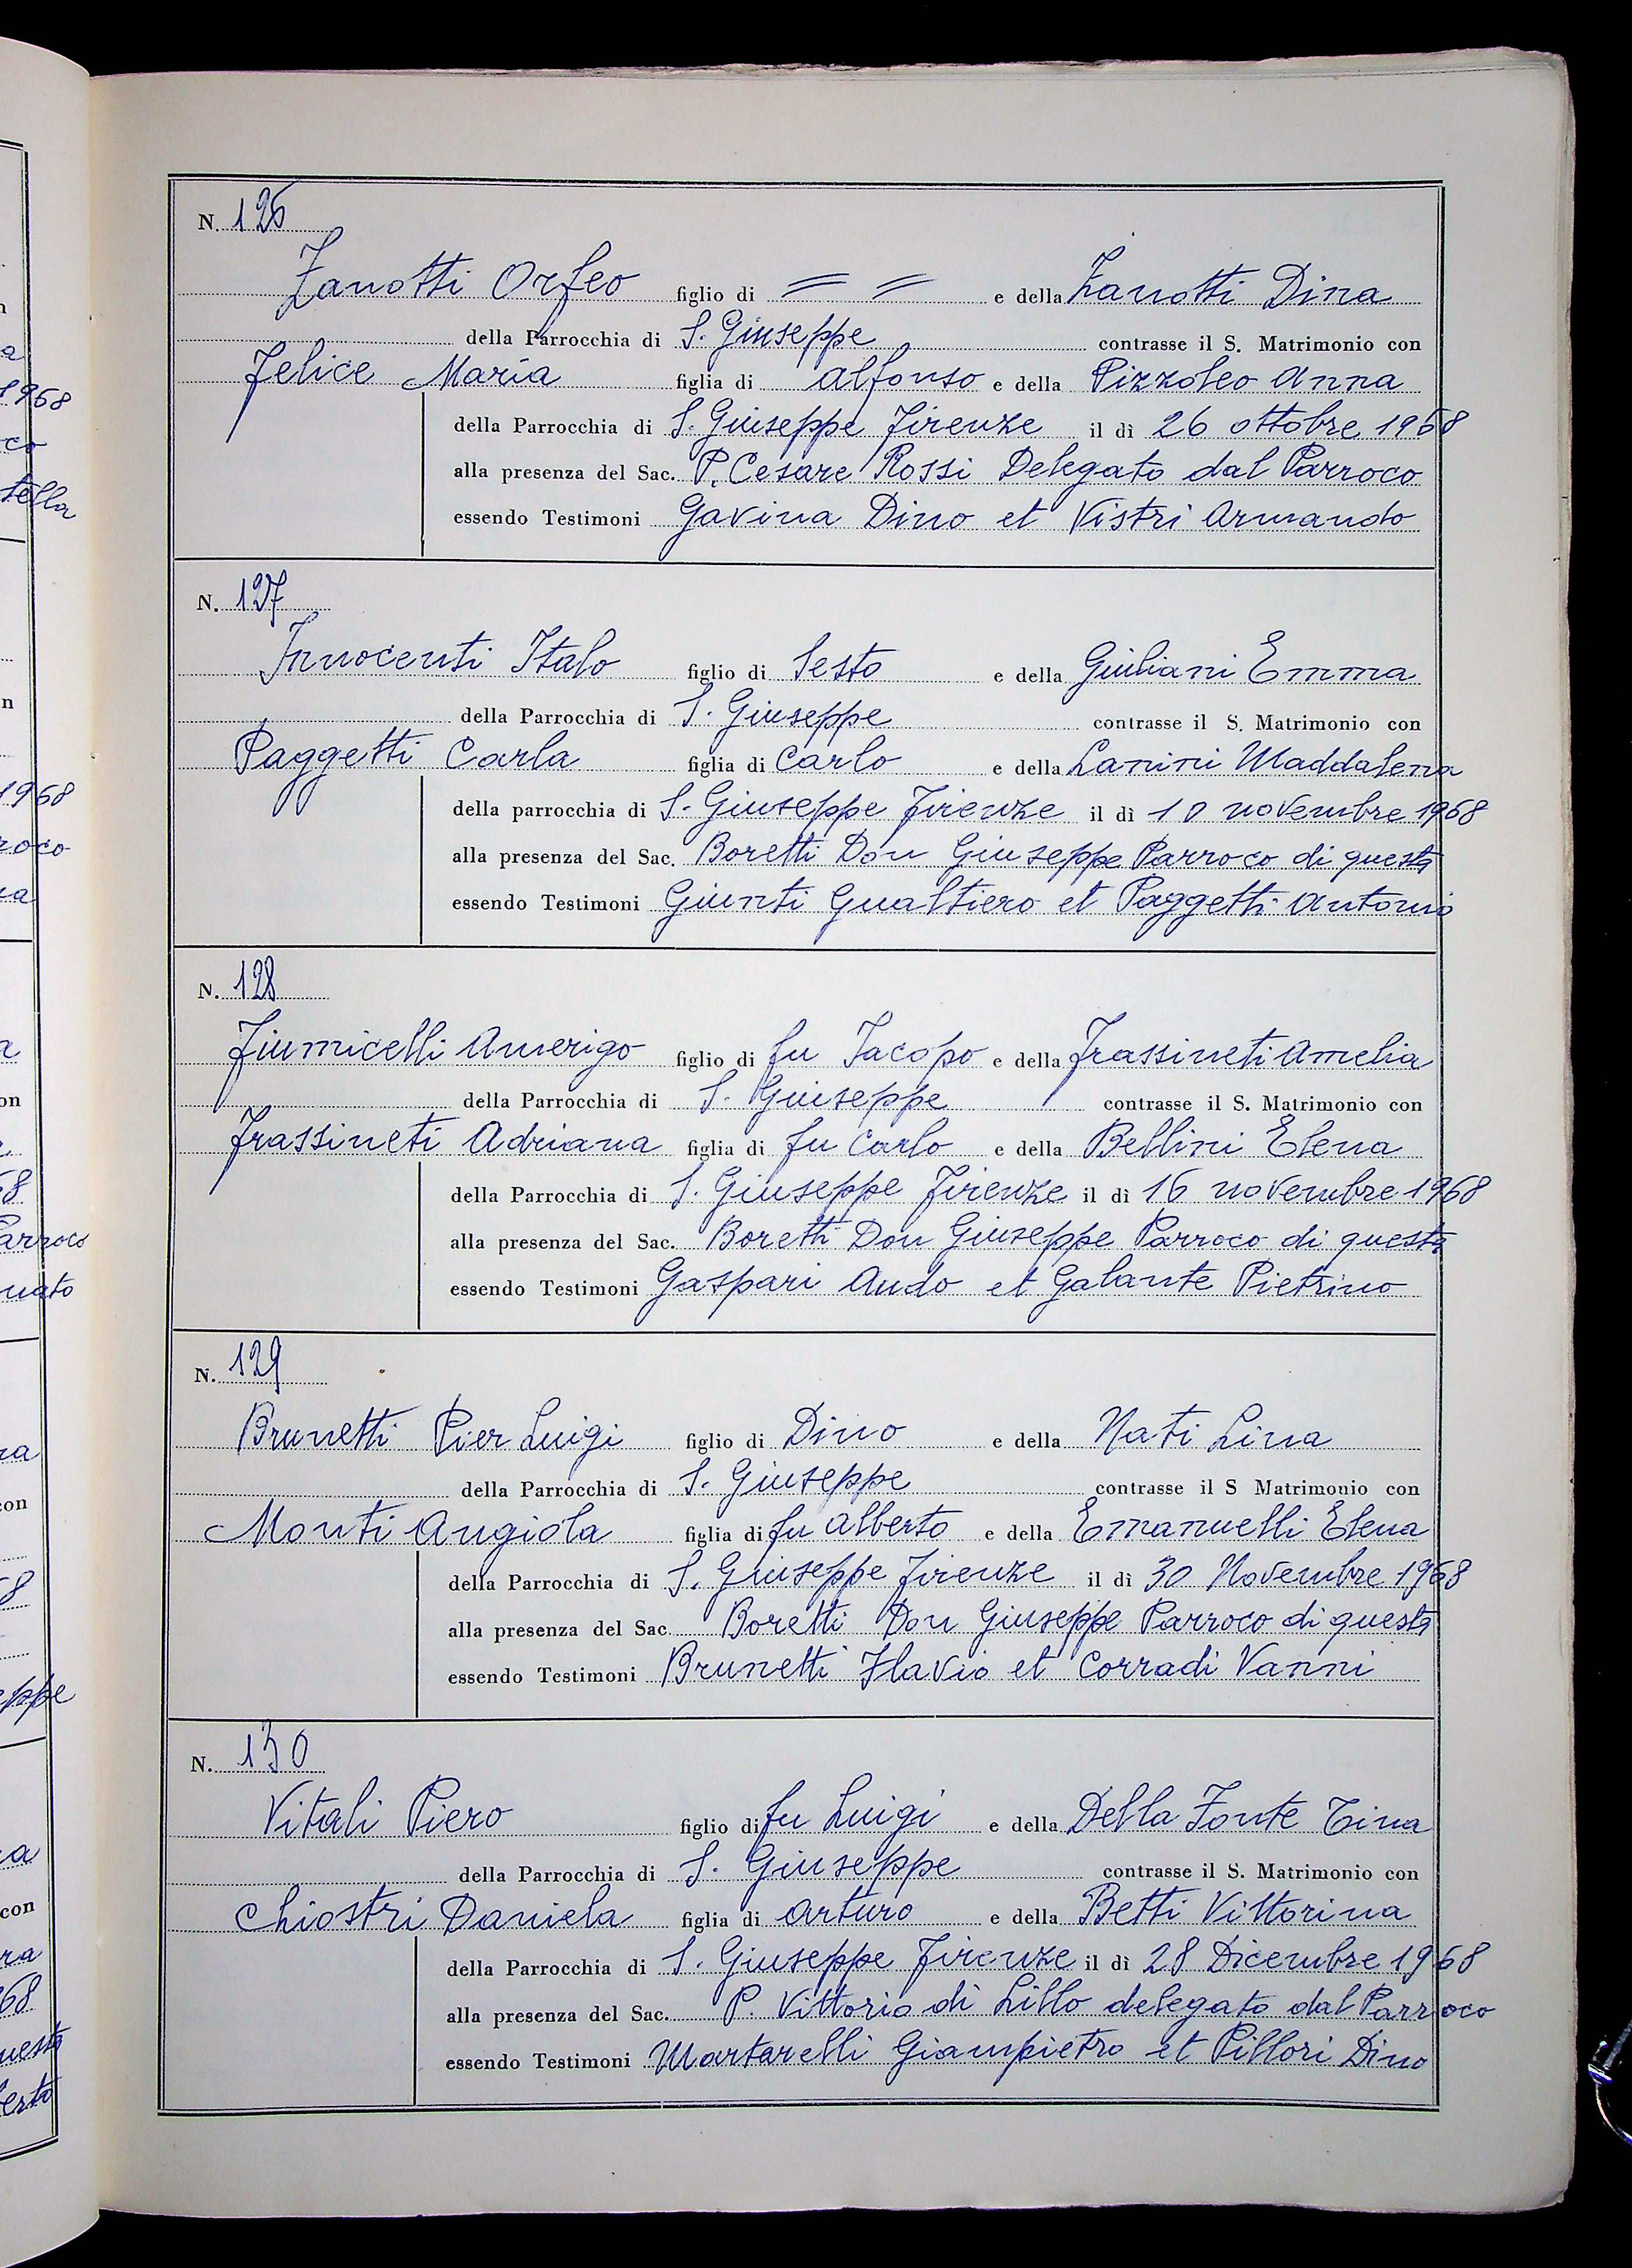 N. 126
Zanotti Orfeo figlio di = = e della Zanotti Dina
della Parrocchia di S. Giuseppe contrasse il S. Matrimonio con
Felice Maria figlia di Alfonso e della Pizzoleo Anna
della Parrocchia di S. Giuseppe Firenze il dì 26 ottobre 1968
alla presenza del Sac. P. Cesare Rossi Delegato dal Parroco
essendo Testimoni Gavina Dino et Vistri Armando
N. 127
Innocenti Italo figlio di Sesto e della Giuliani Emma
della Parrocchia di S. Giuseppe contrasse il S. Matrimonio con
Paggetti Carla figlia di Carlo e della Lanini Maddalena
della parrocchia di S. Giuseppe Firenze il dì 10 novembre 1968
alla presenza del Sac. Boretti Don Giuseppe Parroco di questa
essendo Testimoni Giunti Gualtiero et Paggetti Antonio
N. 128
Fiumicelli Amerigo figlio di fu Jacopo e della Frassineti Amelia
della Parrocchia di S. Giuseppe contrasse il S. Matrimonio con
Frassineti Adriana figlia di fu Carlo e della Bellini Elena
della Parrocchia di S. Giuseppe Firenze il dì 16 novembre 1968
alla presenza del Sac. Boretti Don Giuseppe Parroco di questa
essendo Testimoni Gaspari Audo et Galante Pietrino
N. 129
Brunetti Pier Luigi figlio di Dino e della Nati Lina
della Parrocchia di S. Giuseppe contrasse il S Matrimonio con
Monti Angiola figlia di fu Alberto e della Emanuelli Elena
della Parrocchia di S. Giuseppe Firenze il dì 30 Novembre 1968
alla presenza del Sac. Boretti Don Giuseppe Parroco di questa
essendo Testimoni Brunetti Flavio et Corradi Vanni
N. 130
Vitali Piero figlio di fu Luigi e della Della Fonte Tina
della Parrocchia di S. Giuseppe contrasse il S. Matrimonio con
Chiostri Daniela figlia di Arturo e della Betti Vittorina
della Parrocchia di S. Giuseppe Firenze il dì 28 Dicembre 1968
alla presenza del Sac. P. Vittorio di Lillo delegato dal Parroco
essendo Testimoni Martarelli Giampietro et Pillori Dino